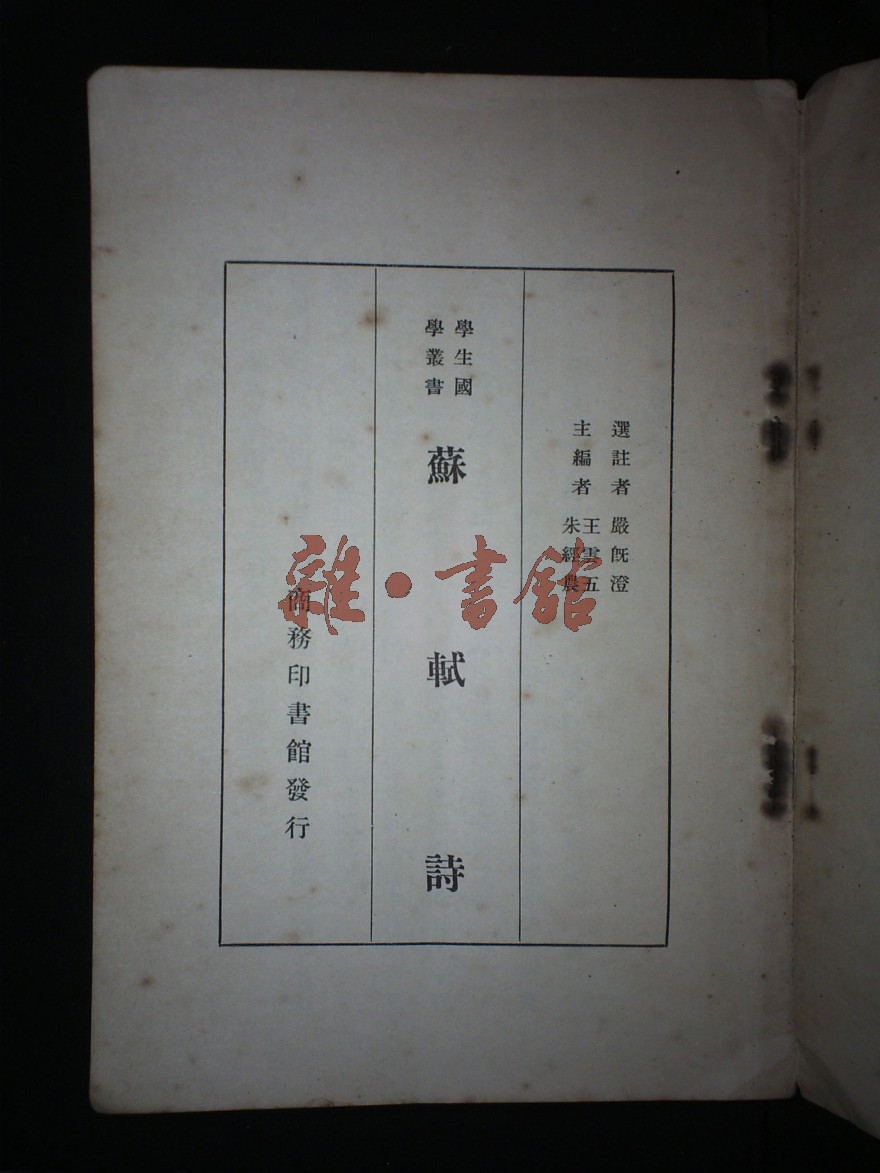 選註者 嚴旣澄
主編者 王雲五
朱經農
學生國
學叢書
蘇軾詩
商務印書館發行
雜·書館